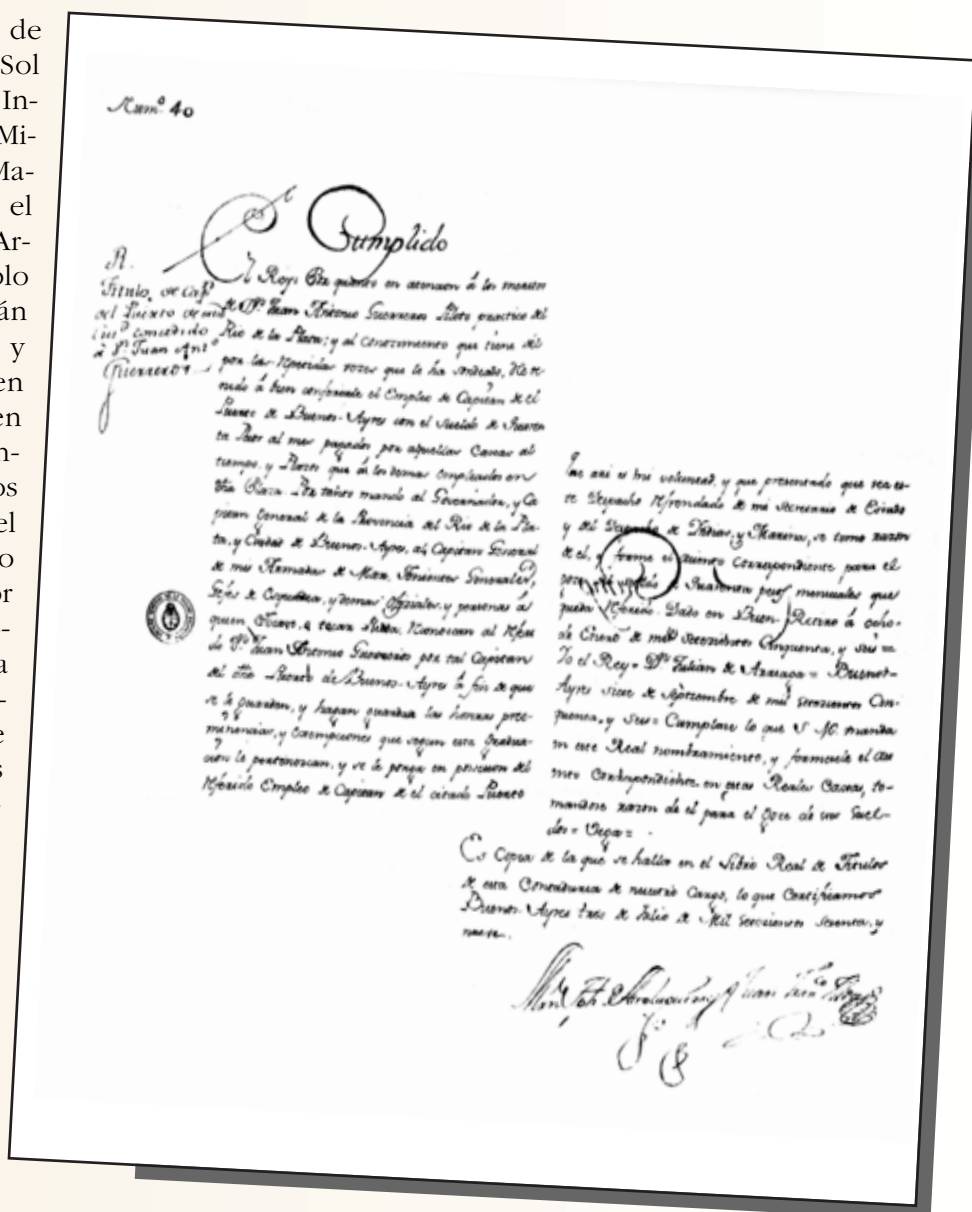 de
Sol
In-
Mi-
Ma-
el
Ar-
olo
án
y
en
en
n-
os
el
o
or
-
a
-
e
s
Num.º 40
Cumplido
R.
Titulo, de Cap.n
del Puerto de
concedido
á D.n Juan Ant.º
Guerreros
El Rey Por quanto en atencion á los meritos
de D.n Juan Antonio Guerreros Piloto practico del
Rio de la Plata; y al conocimiento que tiene del
por las repetidas vezes que le ha sondeado, He te-
nido á bien conferirle el Empleo de Capitan de el
Puerto de Buenos-Ayres con el Sueldo de Quaren-
ta Pesos al mes pagados por aquellas Caxas al
tiempo, y Plazos que á los demas empleados en
Plaza Por tanto mando al Governador, y Ca-
pitan General de la Provincia del Rio de la Pla-
ta, y Ciudad de Buenos-Ayres, al Capitan General
de mis Armadas de Mar, Tenientes Generales,
Gefes de Esquadra, y demas Oficiales, y personas á
quien tocare, ó tocar pueda, reconozcan al
do D.n Juan Antonio Guerreros por tal Capitan
del Puerto de Buenos-Ayres á fin de que
se le guarden, y hagan guardar las honras pree-
minencias, y exempciones que segun esta gradua-
cion le pertenezcan, y se le ponga en posesion del
referido Empleo de Capitan de el citado Puerto
que asi es mi voluntad, y que presentando este
Despacho refrendado de mi Secretario de Estado
y del Despacho de Indias, y Marina, se tome razon
de el, y forme el asiento correspondiente para el
goze del sueldo de Quarenta pesos mensuales que
queda referido. Dado en Buen-Retiro á ocho
de Enero de mil setecientos Cinquenta, y seis =
Yo el Rey = D.n Julian de Arriaga = Buenos-
Ayres siete de Septiembre de mil setecientos Cin-
quenta, y seis = Cumplase lo que S. M. manda
en este Real nombramiento, y formesele el asi-
ento Correspondiente en estas Reales Caxas, to-
mandose razon de el para el goze de sus Suel-
dos =
Es Copia de la que se halla en el Libro Real de Titulos
de esta Contaduria de nuestro Cargo, lo que Certificamos
Buenos-Ayres tres de Julio de Mil setecientos setenta, y
nueve.
Juan